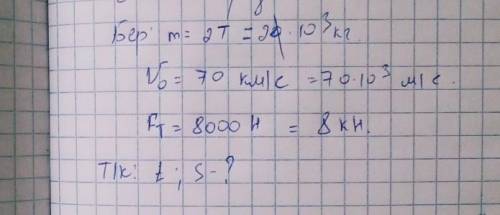 Бер: m = 2T = 2 · 10³ кг
V₀ = 70 км/с = 70·10³ м/с.
F_T = 8000 Н = 8 кН.
Т/к: t ; S - ?